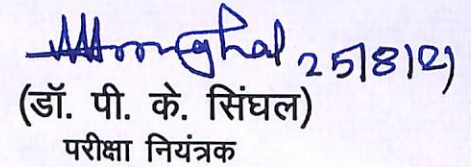 25/8/21
(डॉ. पी. के. सिंघल)
परीक्षा नियंत्रक